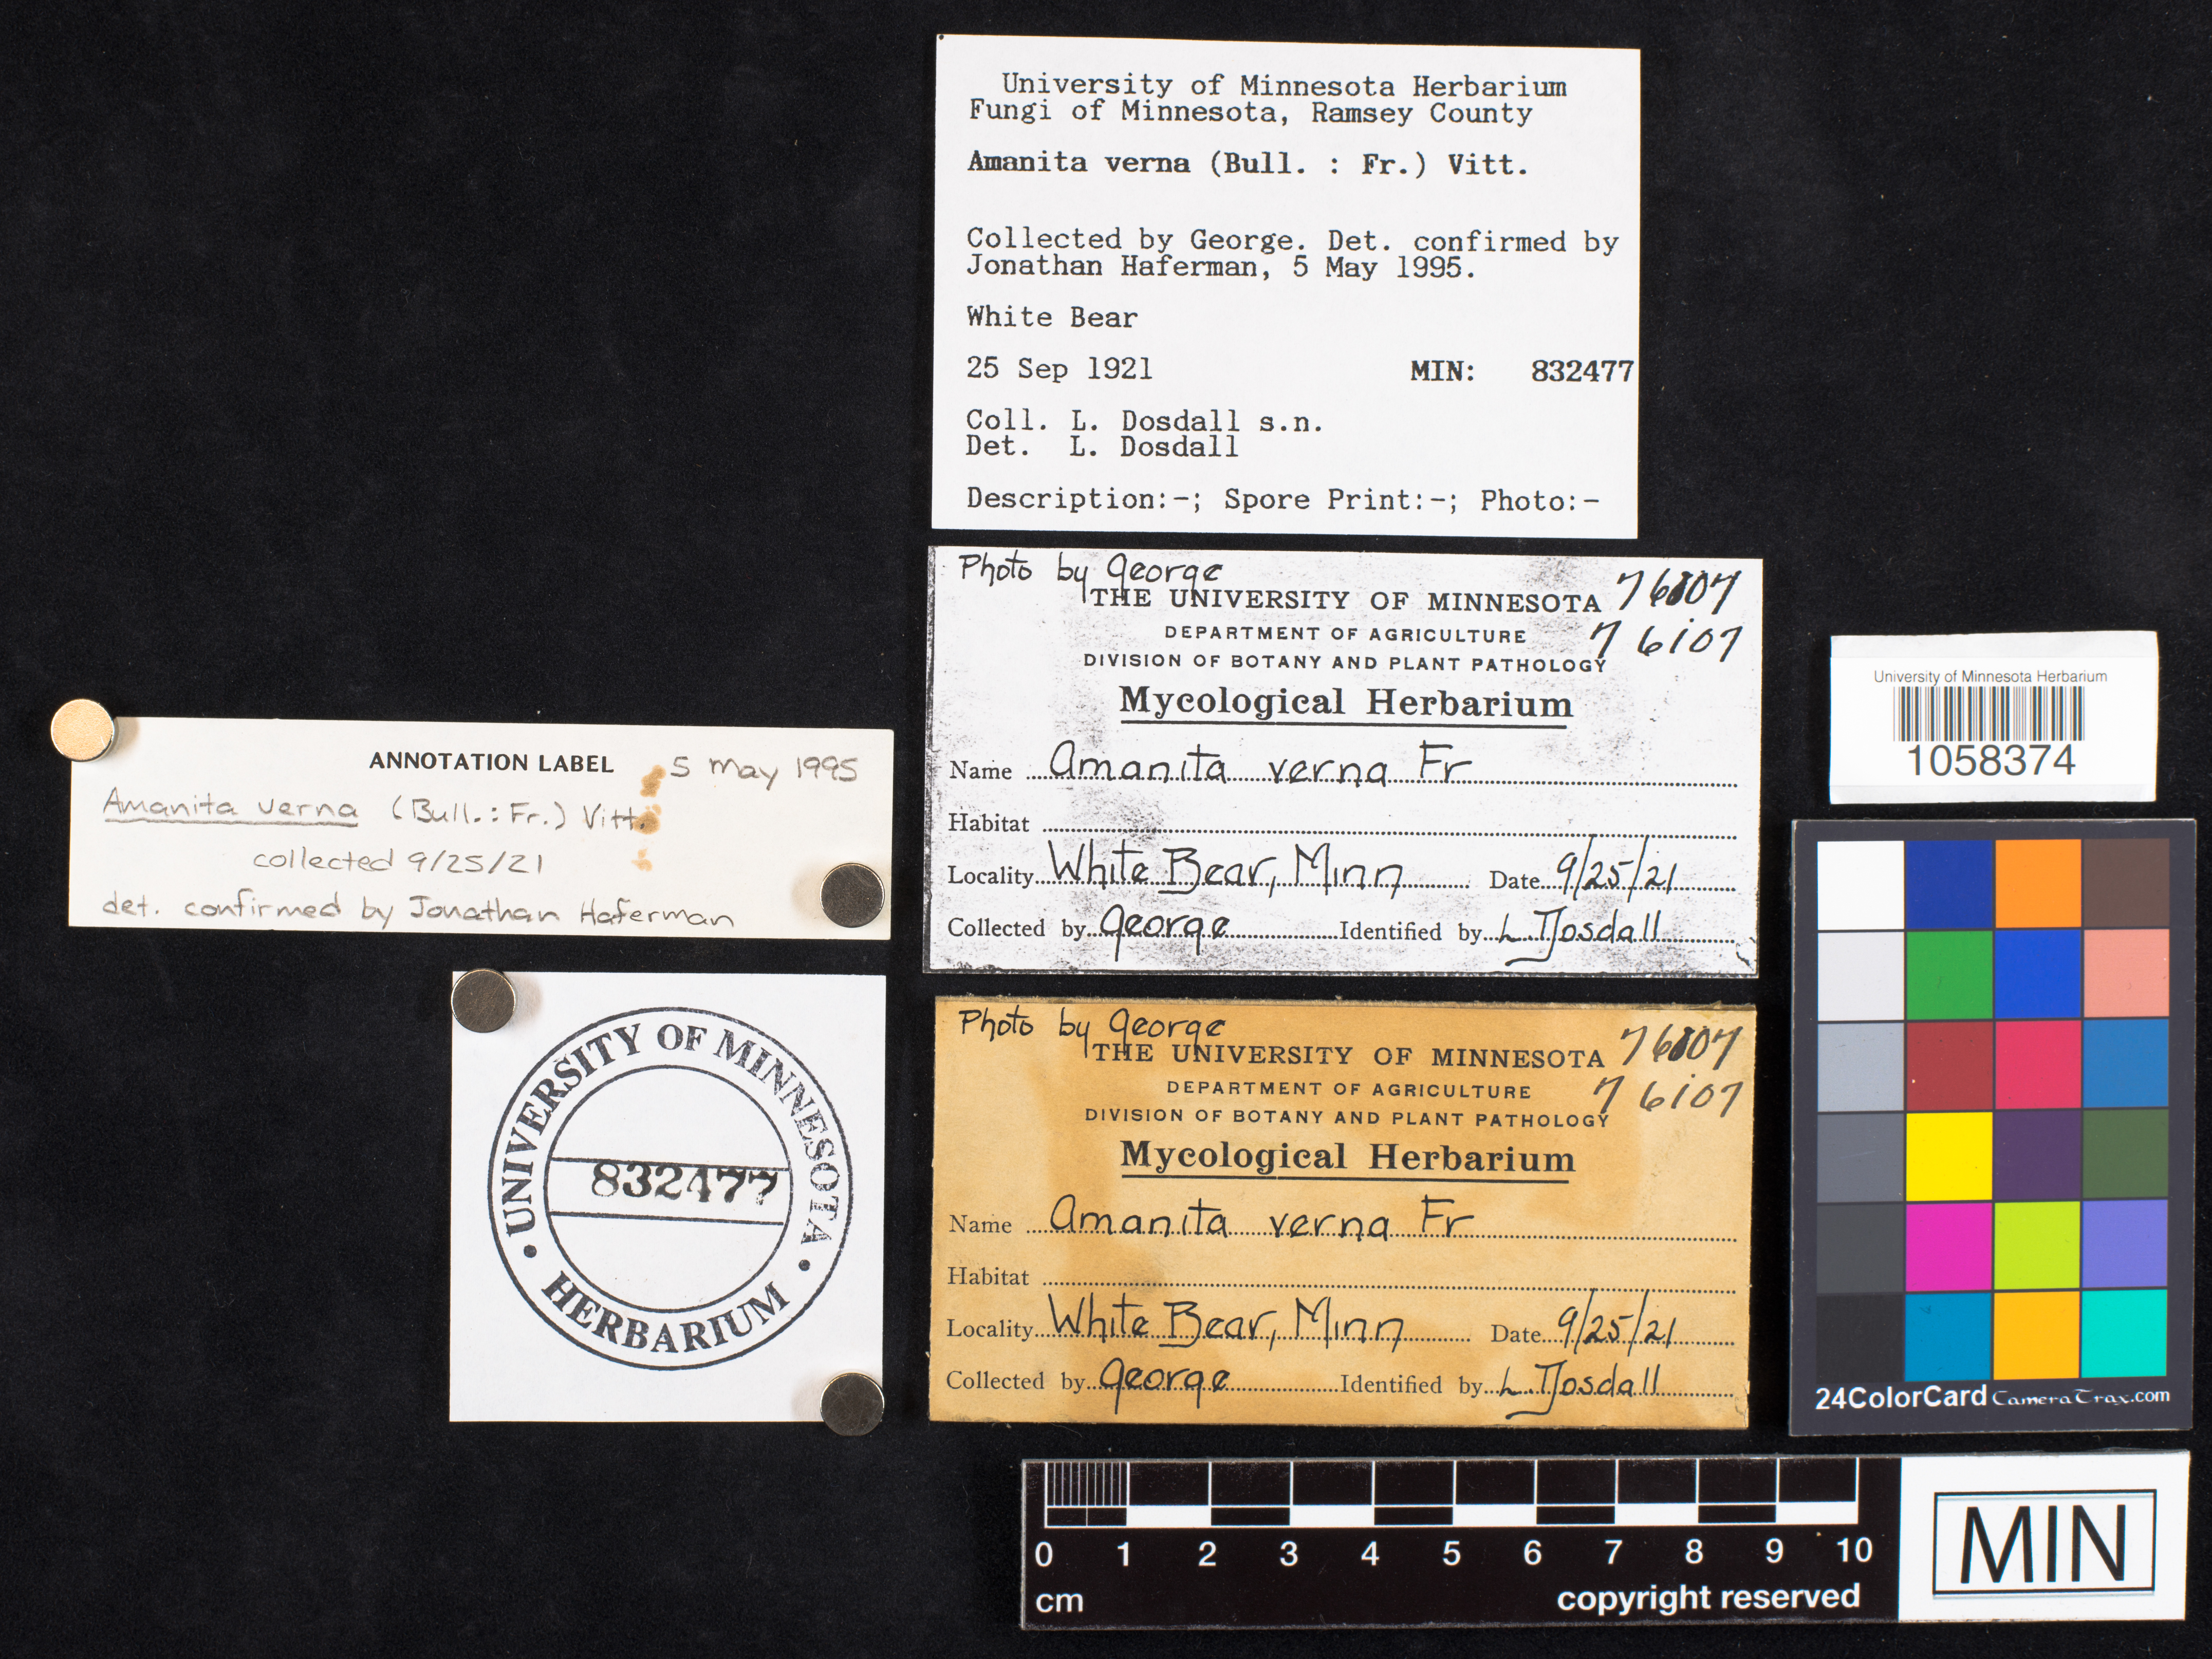 University of Minnesota Herbarium
Fungi of Minnesota, Ramsey County
Amanita verna (Bull. : Fr.) Vitt.
Collected by George. Det. confirmed by
Jonathan Haferman, 5 May 1995.
White Bear
25 Sep 1921 MIN: 832477
Coll. L. Dosdall s.n.
Det. L. Dosdall
Description:-; Spore Print:-; Photo:-
Photo by George
THE UNIVERSITY OF MINNESOTA 76107
DEPARTMENT OF AGRICULTURE 76107
DIVISION OF BOTANY AND PLANT PATHOLOGY
Mycological Herbarium
Name Amanita verna Fr
Habitat
Locality White Bear, Minn Date 9/25/21
Collected by George Identified by L Dosdall
University of Minnesota Herbarium
1058374
ANNOTATION LABEL 5 May 1995
Amanita verna (Bull.: Fr.) Vitt.
collected 9/25/21
det. confirmed by Jonathan Haferman
UNIVERSITY OF MINNESOTA
832477
HERBARIUM
Photo by George
THE UNIVERSITY OF MINNESOTA 76107
DEPARTMENT OF AGRICULTURE 76107
DIVISION OF BOTANY AND PLANT PATHOLOGY
Mycological Herbarium
Name Amanita verna Fr
Habitat
Locality White Bear, Minn Date 9/25/21
Collected by George Identified by L Dosdall
24ColorCard CameraTrax.com
0 1 2 3 4 5 6 7 8 9 10
cm copyright reserved
MIN